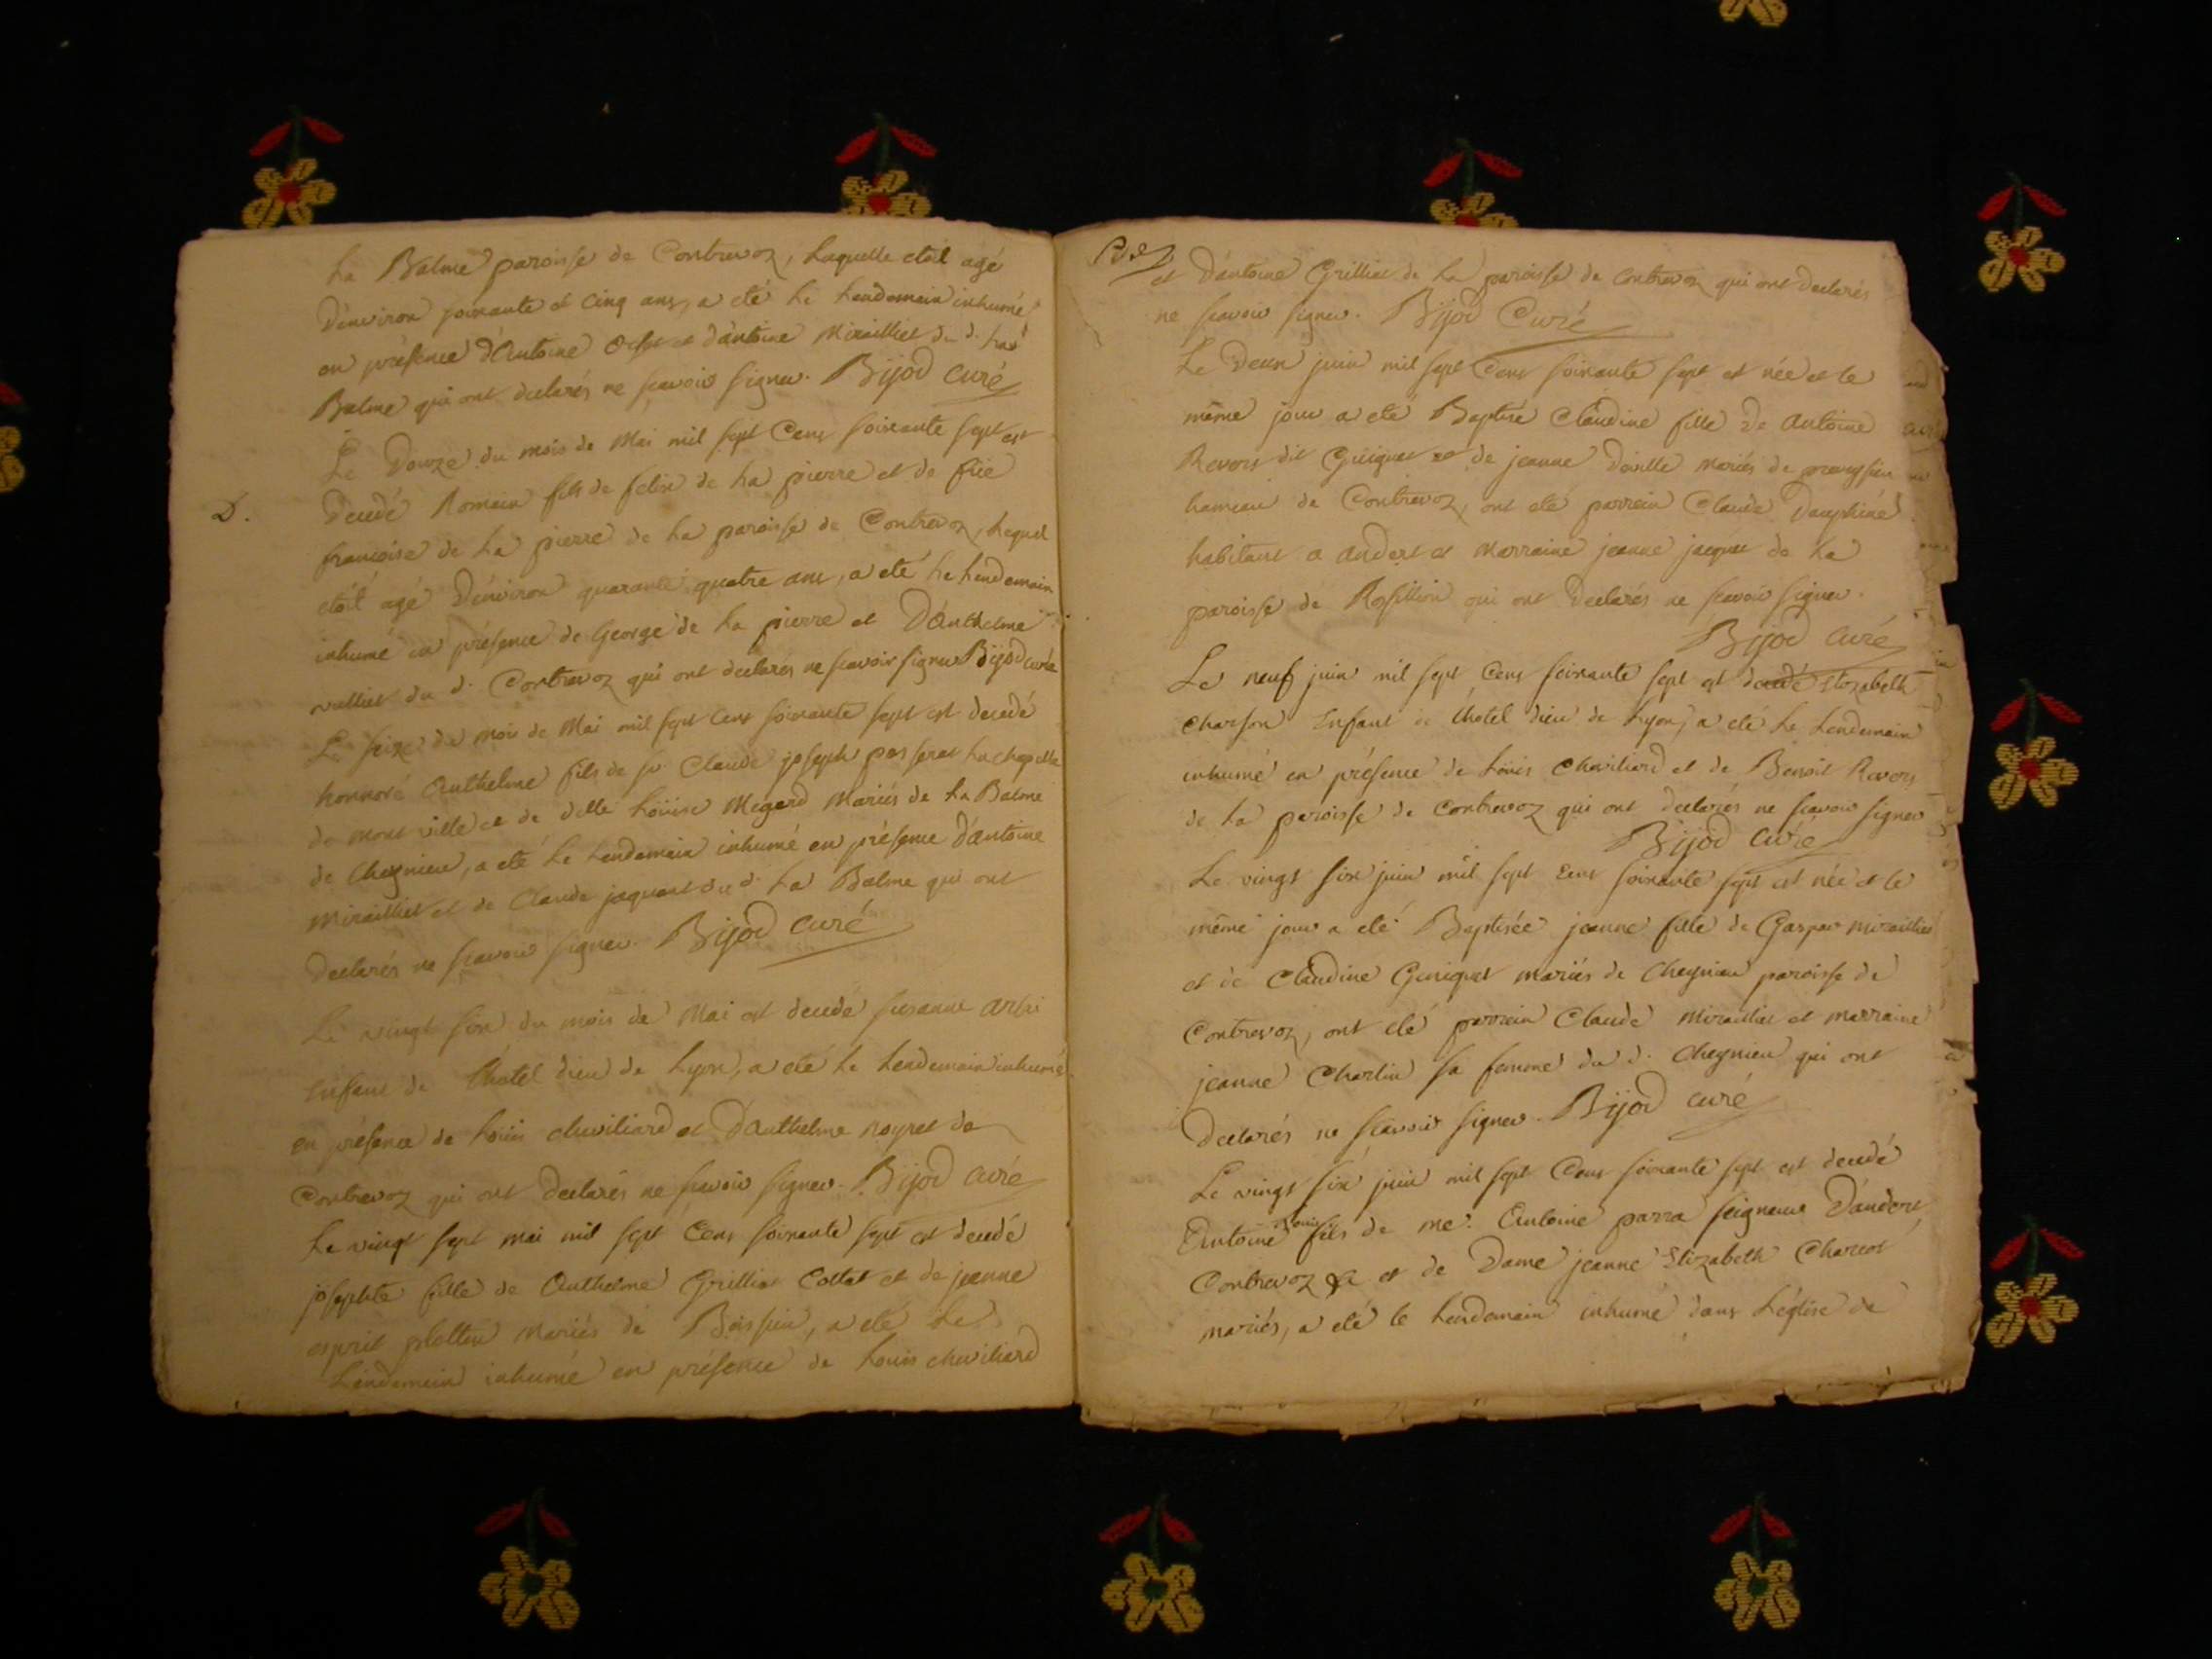 La Balme paroisse de Contrevoz, Laquelle étoit agé
D'environ soixante et Cinq ans, a eté le Lendemain inhumé
en présence d'Antoine et d'antoine Mirailliet du d. La
Balme qui ont declarés ne scavoir signer. Bijod Curé
Le Douze du mois de Mai mil sept Cens soixante sept est
D.
Decedé Romain fils de felix de La pierre et de
françoise de La pierre de La paroisse de Contrevoz, Lequel
étoit agé D'environ quarante quatre ans, a eté le Lendemain
inhumé en présence de George de La pierre et D'Anthelme
vulliet du d. Contrevoz qui ont declarés ne scavoir signer Bijod curé
Le seize du mois de Mai mil sept Cens soixante sept est decedé
honnoré Anthelme fils de sr. Claude joseph passerat La chapelle
de mont ville et de delle Loüise Megard Mariés de La Balme
de Cheynieu, a eté Le Lendemain inhumé en présence d'Antoine
Mirailliet et de Claude jaquet du d. La Balme qui ont
Declarés ne scavoir signer. Bijod Curé
Le vingt six du mois de Mai est decedé susanne
Enfant de L'hotel dieu de Lyon, a eté le Lendemain inhumé
en présence de Loüis chevilliard et D'Anthelme Noyret de
Contrevoz qui ont Declarés ne scavoir signer. Bijod Curé
Le vingt sept mai mil sept Cens soixante sept est decedé
josephte fille de Anthelme Grilliet Collat et de jeanne
esprit Mariés de Boissieu, a eté Le
Lendemain inhumé en présence de Louis chevilliard
et D'antoine Grilliet de La paroisse de Contrevoz qui ont declarés
ne scavoir signer. Bijod Curé
Le Deux juin mil sept Cens soixante sept est née et le
même jour a eté Baptisé Claudine fille de Antoine
Revors dit Guiguet et de jeanne Mariés de preveyssieu
hameau de Contrevoz, ont eté parrein Claude Dauphiné
habitant a Andert et Marraine jeanne jaquet de La
paroisse de Rossillion qui ont Declarés ne scavoir signer.
Bijod Curé
Le neuf juin mil sept Cens soixante sept est decedé Elizabeth
Charson Enfant de L'hotel dieu de Lyon, a eté Le Lendemain
inhumé en présence de Loüis Chevilliard et de Benoit Revors
de La paroisse de Contrevoz qui ont declarés ne scavoir signer
Bijod Curé
Le vingt six juin mil sept Cens soixante sept est née et le
même jour a eté Baptisée jeanne fille de Gaspar Mirailliet
et de Claudine Guiguet mariés de Cheynieu paroisse de
Contrevoz, ont eté parrein Claude Mirailliet et marraine
jeanne Charlin sa femme du d. Cheynieu qui ont
Declarés ne scavoir signer. Bijod Curé
Le vingt six juin mil sept Cens soixante sept est decedé
Antoine Louis fils de me. Antoine parra seigneur D'andert
Contrevoz et de Dame jeanne Elizabeth Charcot
mariés, a eté le Lendemain inhumé dans L'église de